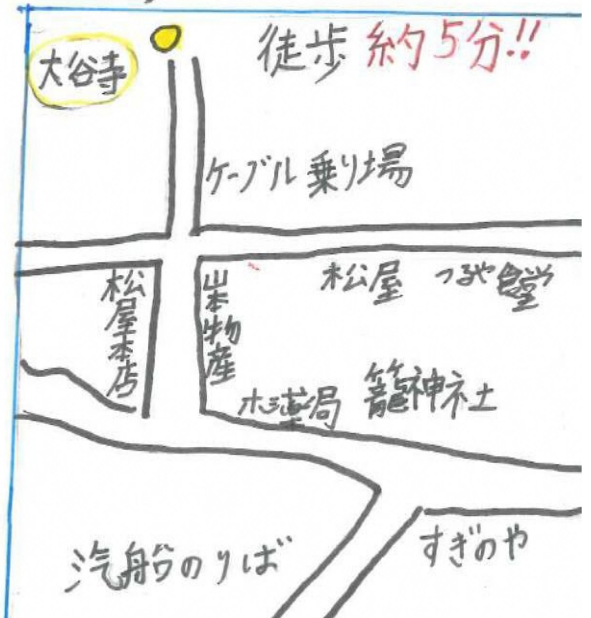 大谷寺
徒歩 約5分!!
ケーブル乗り場
松屋本店
山本物産
松屋
つるや食堂
ホシ薬局
籠神社
汽船のりば
すぎのや